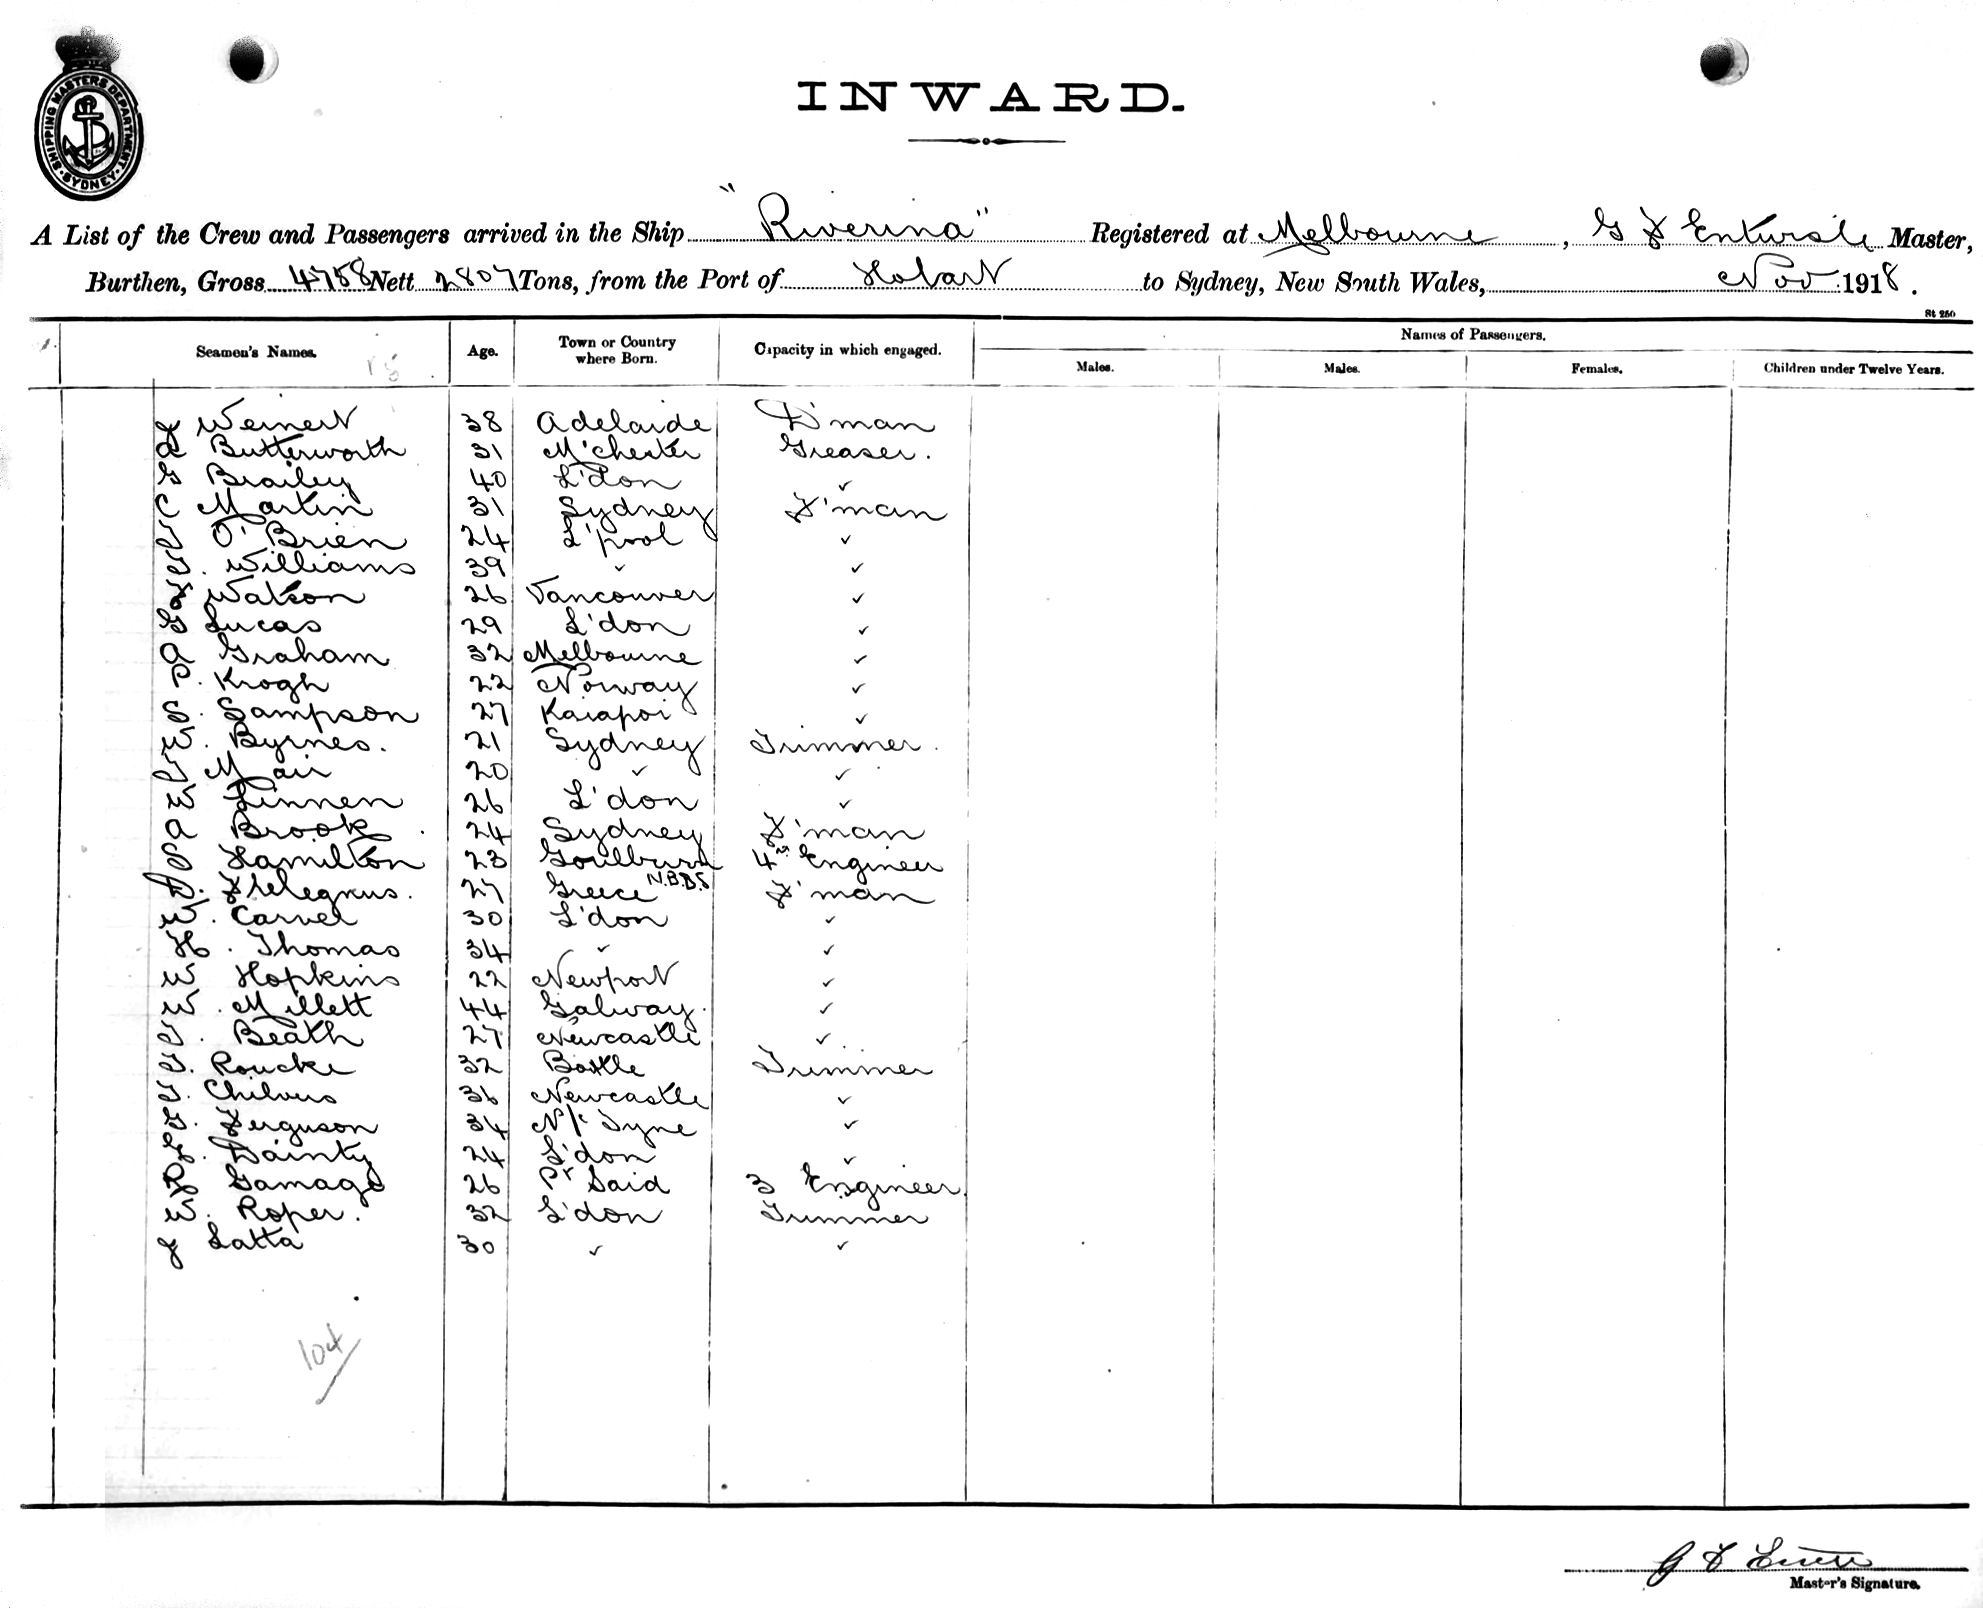 SHIPPING MASTERS DEPARTMENT
SYDNEY
INWARD.
A List of the Crew and Passengers arrived in the Ship "Riverina" Registered at Melbourne, G F Entwisle Master,
Burthen, Gross 4758 Nett 2807 Tons, from the Port of Hobart to Sydney, New South Wales, Nov 1918.
St 250
Seamen's Names. Age. Town or Country where Born. Capacity in which engaged. Names of Passengers.
Males. Males. Females. Children under Twelve Years.
J Weinert 38 Adelaide D'man
Butterworth 31 M'chester Greaser.
G Brailey 40 L'don ✓
C Martin 31 Sydney F'man
T O'Brien 24 L'pool ✓
T. Williams 39 ✓ ✓
F Watson 26 Vancouver ✓
G Lucas 29 L'don ✓
A Graham 32 Melbourne ✓
P. Krogh 22 Norway ✓
S. Sampson 27 Kaiapoi ✓
W. Byrnes. 21 Sydney Trimmer.
T Mair 20 ✓ ✓
W Linnen 26 L'don ✓
A Brook 24 Sydney F'man
S Hamilton 23 Goulburn 4th Engineer
D. 27 Greece N.B.B.S F'man
W. Carvel 30 L'don ✓
H. Thomas 34 ✓ ✓
W Hopkins 22 Newport ✓
W. Millett 44 Galway. ✓
T. Beath 27 Newcastle ✓
T. Roucke 32 Bootle Trimmer
T. Chilvers 36 Newcastle ✓
G. Ferguson 34 N/c Tyne ✓
Dainty 24 L'don ✓
R Gamage 26 Pt Said 3 Engineer.
W. Roper. 32 L'don Trimmer
J Latta 30 ✓ ✓
104
G F
Master's Signature.